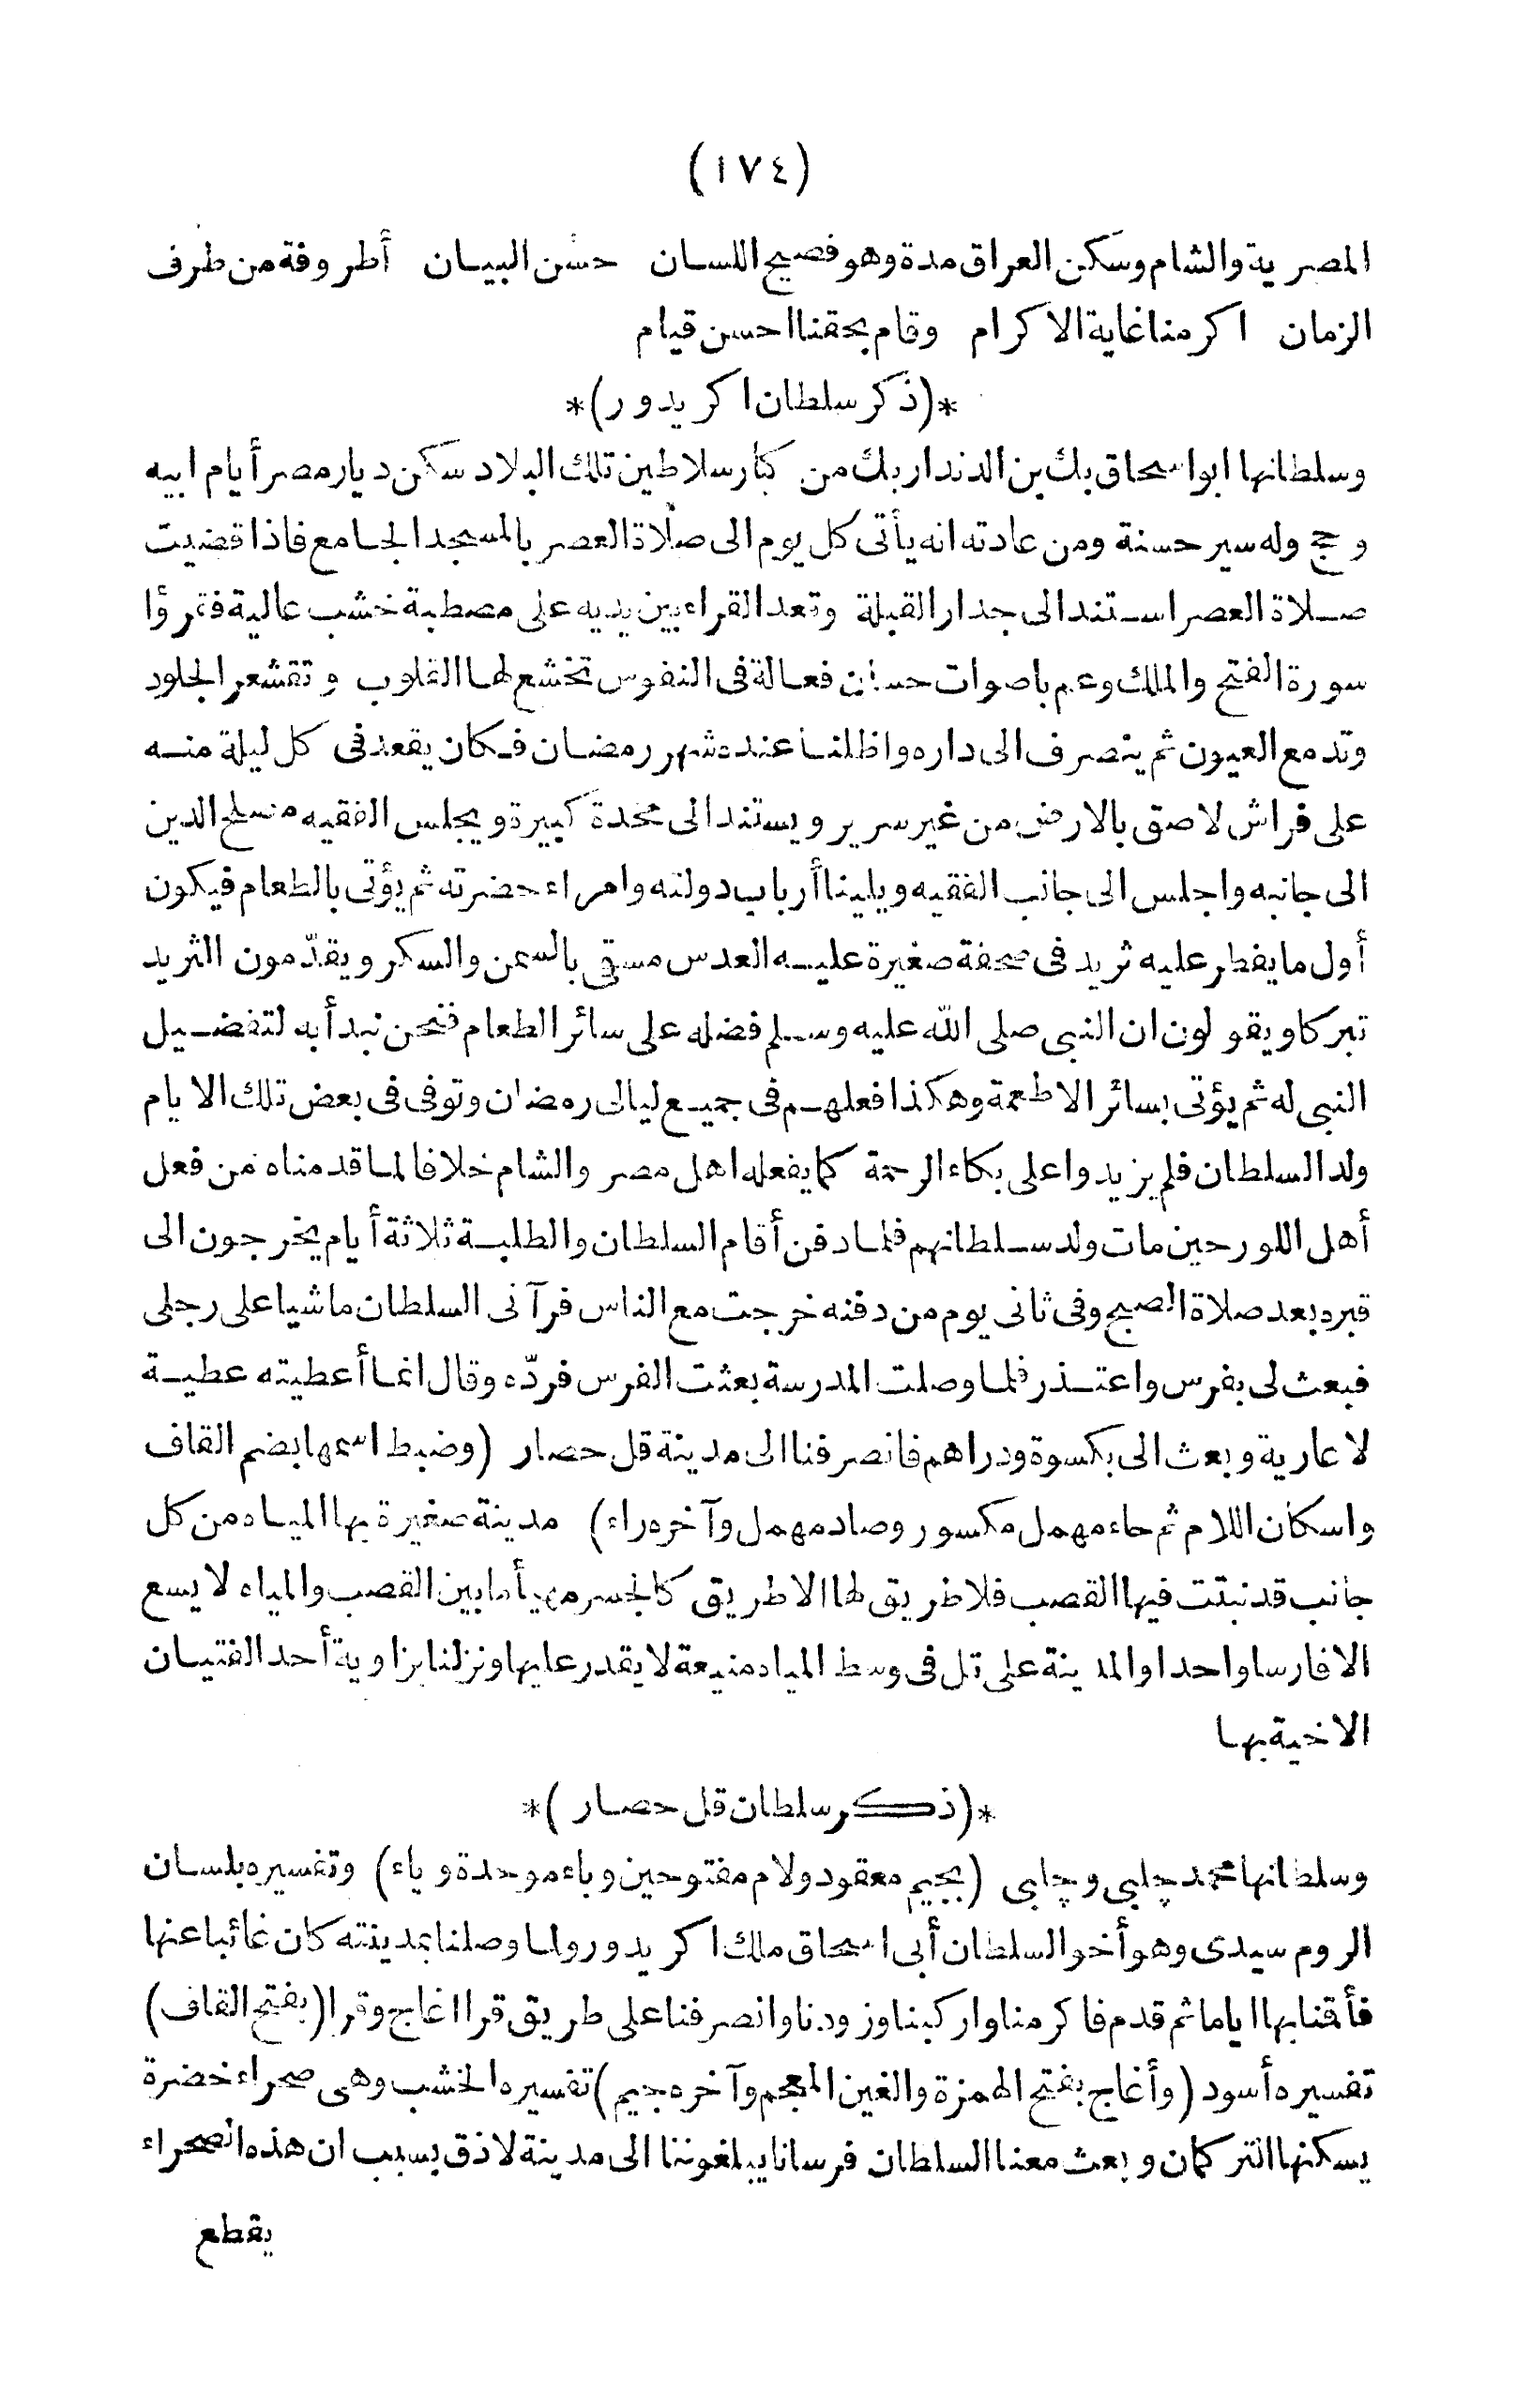 (١٧٤)
المصرية والشام وسكن العراق مدة وهو فصيح اللسان حسن البيان أطروفة من طرف
الزمان اكرمنا غاية الاكرام وقام بحقنا احسن قيام
*(ذكر سلطان اكريدور)*
وسلطانها ابو اسحاق بك بن الدندار بك من كبار سلاطين تلك البلاد سكن ديار مصر أيام ابيه
وحج وله سير حسنة ومن عادته انه يأتى كل يوم الى صلاة العصر بالمسجد الجامع فاذا قضيت
صلاة العصر استند الى جدار القبلة وقعد القراء بين يديه على مصطبة خشب عالية فقرؤا
سورة الفتح والملك وعم باصوات حسان فعالة فى النفوس تخشع لها القلوب وتقشعر الجلود
وتدمع العيون ثم ينصرف الى داره واظلنا عنده شهر رمضان فكان يقعد فى كل ليلة منه
على فراش لاصق بالارض من غير سرير ويستند الى مخدة كبيرة ويجلس الفقيه مصلح الدين
الى جانبه واجلس الى جانب الفقيه ويلينا أرباب دولته وامراء حضرته ثم يؤتى بالطعام فيكون
أول ما يفطر عليه ثريد فى صحفة صغيرة عليه العدس مسقى بالسمن والسكر ويقدّمون الثريد
تبركا ويقولون ان النبى صلى الله عليه وسلم فضله على سائر الطعام فنحن نبدأ به لتفضيل
النبى له ثم يؤتى بسائر الاطعمة وهكذا فعلهم فى جميع ليالى رمضان وتوفى فى بعض تلك الايام
ولد السلطان فلم يزيدوا على بكاء الرحمة كما يفعله اهل مصر والشام خلافا لما قدمناه من فعل
أهل اللور حين مات ولد سلطانهم فلما دفن أقام السلطان والطلبة ثلاثة أيام يخرجون الى
قبره بعد صلاة الصبح وفى ثانى يوم من دفنه خرجت مع الناس فرآنى السلطان ماشيا على رجلى
فبعث لى بفرس واعتذر فلما وصلت المدرسة بعثت الفرس فردّه وقال انما أعطيته عطية
لا عارية وبعث الى بكسوة ودراهم فانصرفنا الى مدينة قل حصار (وضبط اسمها بضم القاف
واسكان اللام ثم حاء مهمل مكسور وصاد مهمل وآخره راء) مدينة صغيرة بها المياه من كل
جانب قد نبتت فيها القصب فلا طريق لها الا طريق كالجسر مهيأ ما بين القصب والمياه لا يسع
الا فارسا واحدا والمدينة على تل فى وسط المياه منيعة لا يقدر عليها ونزلنا بزاوية أحد الفتيان
الاخية بها
*(ذكر سلطان قل حصار)*
وسلطانها محمد چلبى وچلبى (بجيم معقود ولام مفتوحين وباء موحدة وياء) وتفسيره بلسان
الروم سيدى وهو أخو السلطان أبى اسحاق ملك اكريدور ولما وصلنا بمدينته كان غائبا عنها
فأقنا بها اياما ثم قدم فاكرمنا واركبنا وزودنا وانصرفنا على طريق قرا اغاج وقرا (بفتح القاف)
تفسيره أسود (وأغاج بفتح الهمزة والغين المعجم وآخره جيم) تفسيره الخشب وهى صحراء خضرة
يسكنها التركمان وبعث معنا السلطان فرسانا يبلغوننا الى مدينة لاذق بسبب ان هذه الصحراء
يقطع